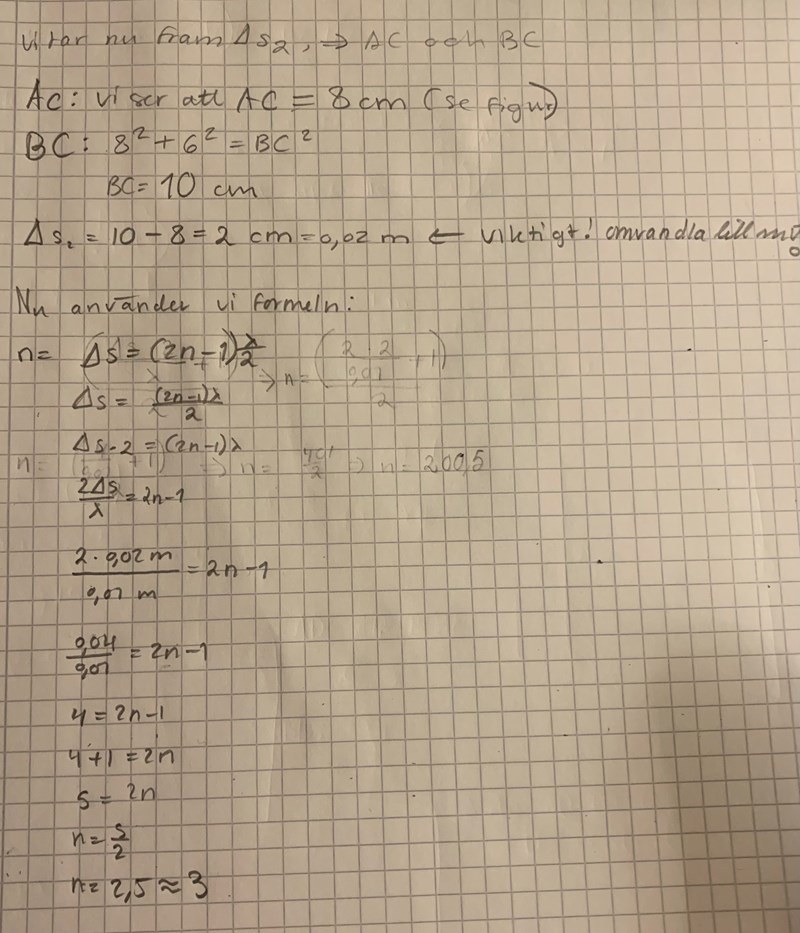 Vi tar nu fram Δs₂, ⇒ AC och BC
AC: vi ser att AC = 8 cm (se figur)
BC: 8² + 6² = BC²
BC = 10 cm
Δs₂ = 10 - 8 = 2 cm = 0,02 m ← viktigt! omvandla till m!
Nu använder vi formeln:
n= Δs = (2n-1) λ/2
⇒ n = (2·2/0,01 + 1)/2
Δs = (2n-1)λ/2
Δs·2 = (2n-1)λ
n= ⇒ n = 401/2 ⇒ n = 200,5
2Δs/λ = 2n-1
2·0,02 m/0,01 m = 2n-1
0,04/0,01 = 2n-1
4 = 2n-1
4+1 = 2n
5 = 2n
n = 5/2
n = 2,5 ≈ 3